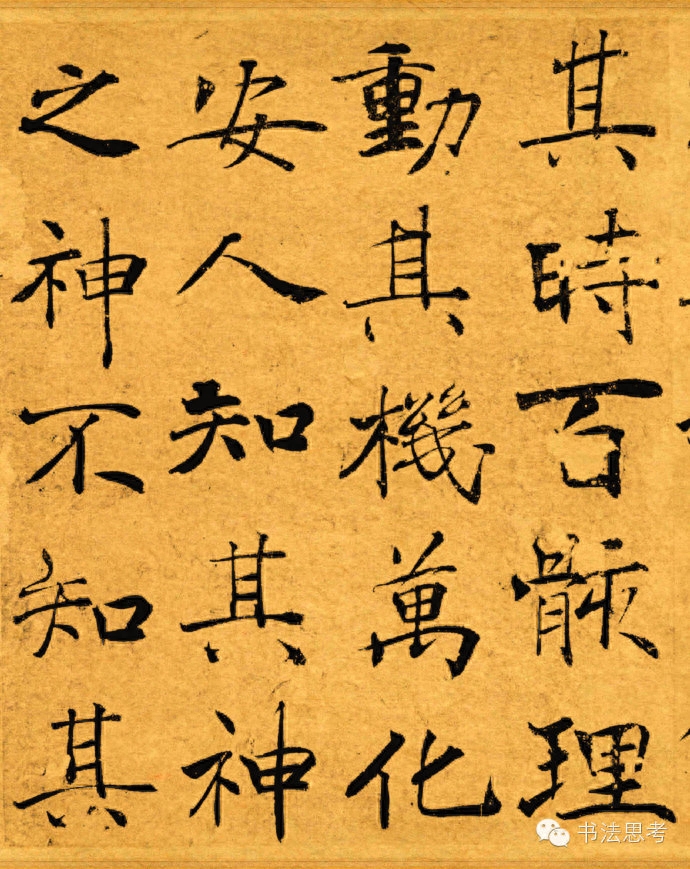 其時百骸理
動其機萬化
安人知其神
之神不知其
书法思考